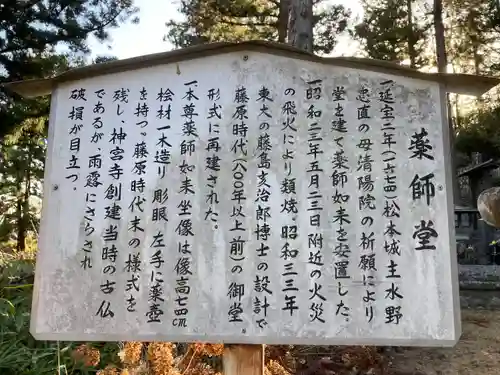 薬師堂
一延宝二年(一六七四)松本城主水野
忠直の母清陽院の祈願により
堂を建て薬師如来を安置した。
一昭和二三年五月二三日附近の火災
の飛火により類焼。昭和三三年
東大の藤島亥治郎博士の設計で
藤原時代(八〇〇年以上前)の御堂
形式に再建された。
一本尊薬師如来坐像は像高七四cm
桧材一木造り彫眼、左手に薬壺
を持つ。藤原時代末の様式を
残し、神宮寺創建当時の古仏
であるが、雨露にさらされ
破損が目立つ。